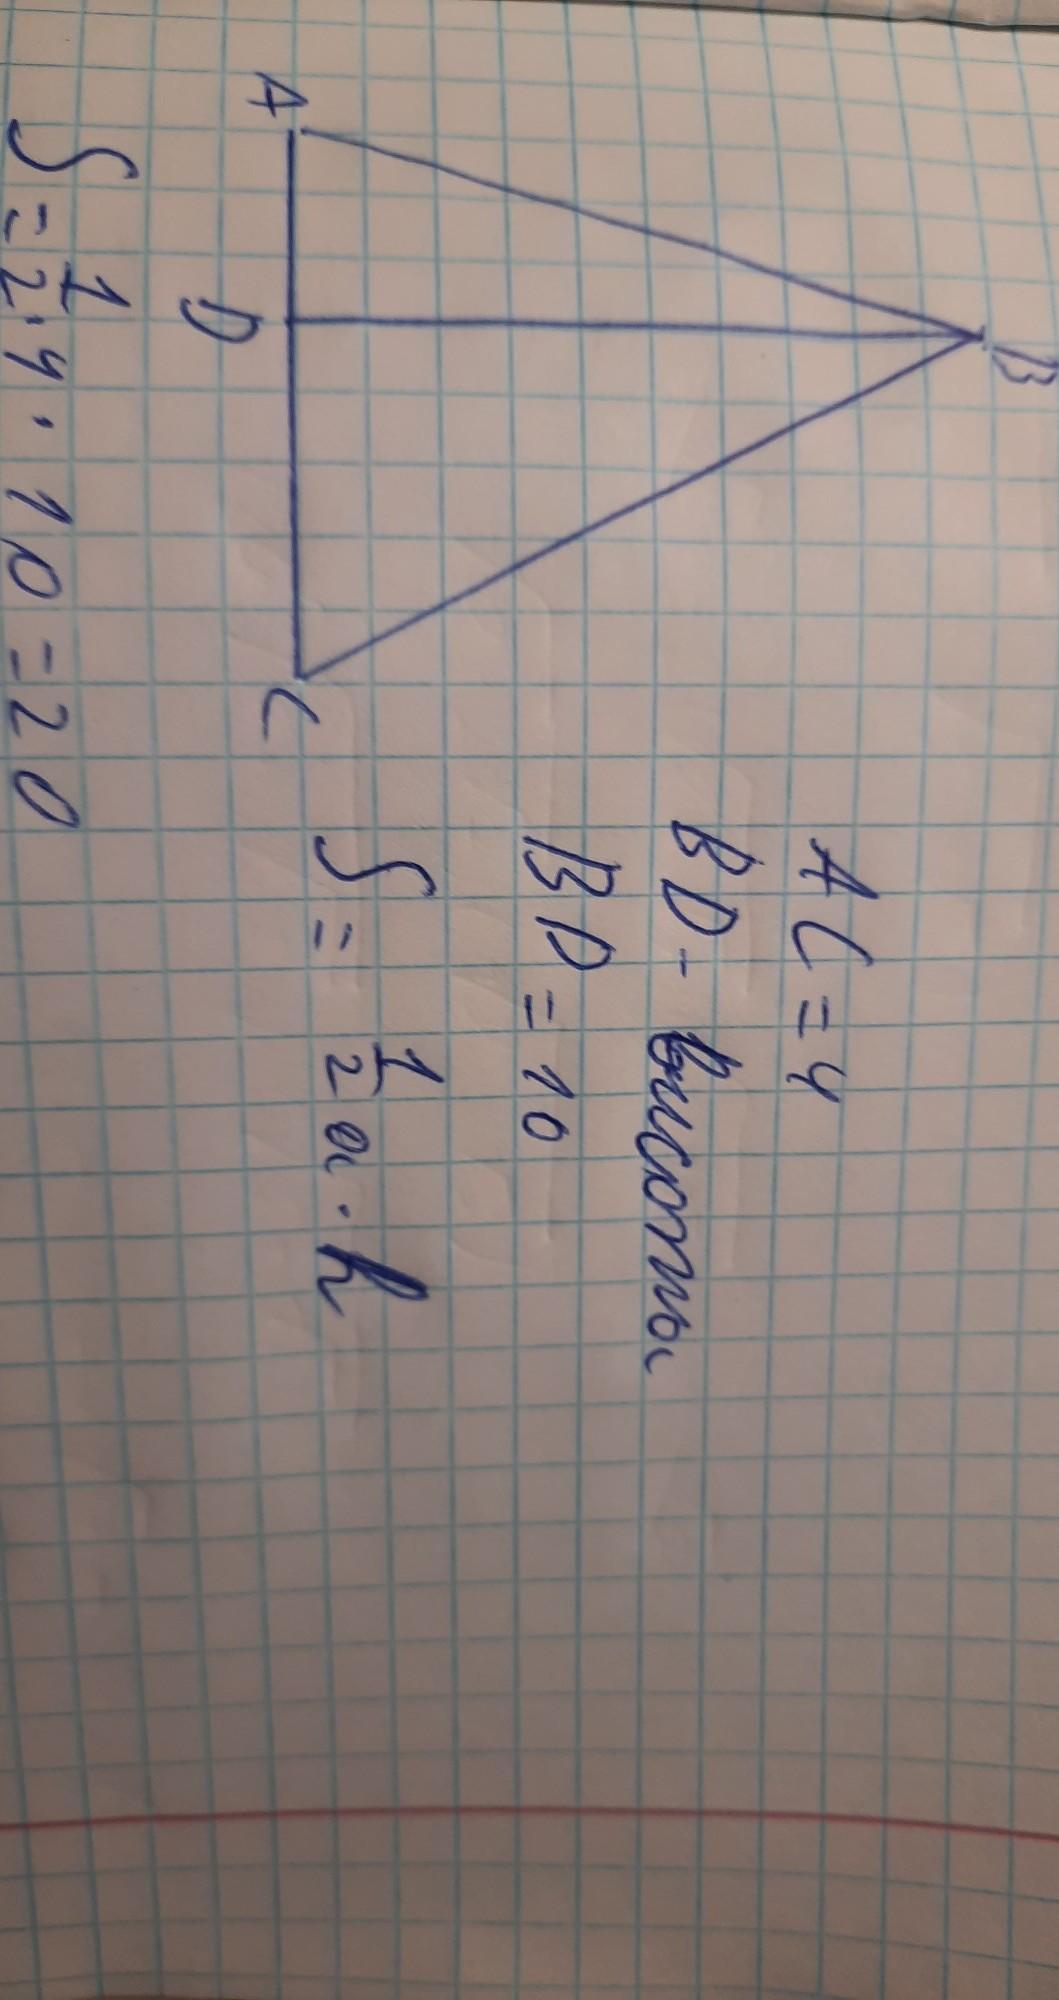 B
A
D
C
AC = 4
BD - висота
BD = 10
S = 1/2 a · h
S = 1/2 · 4 · 10 = 20